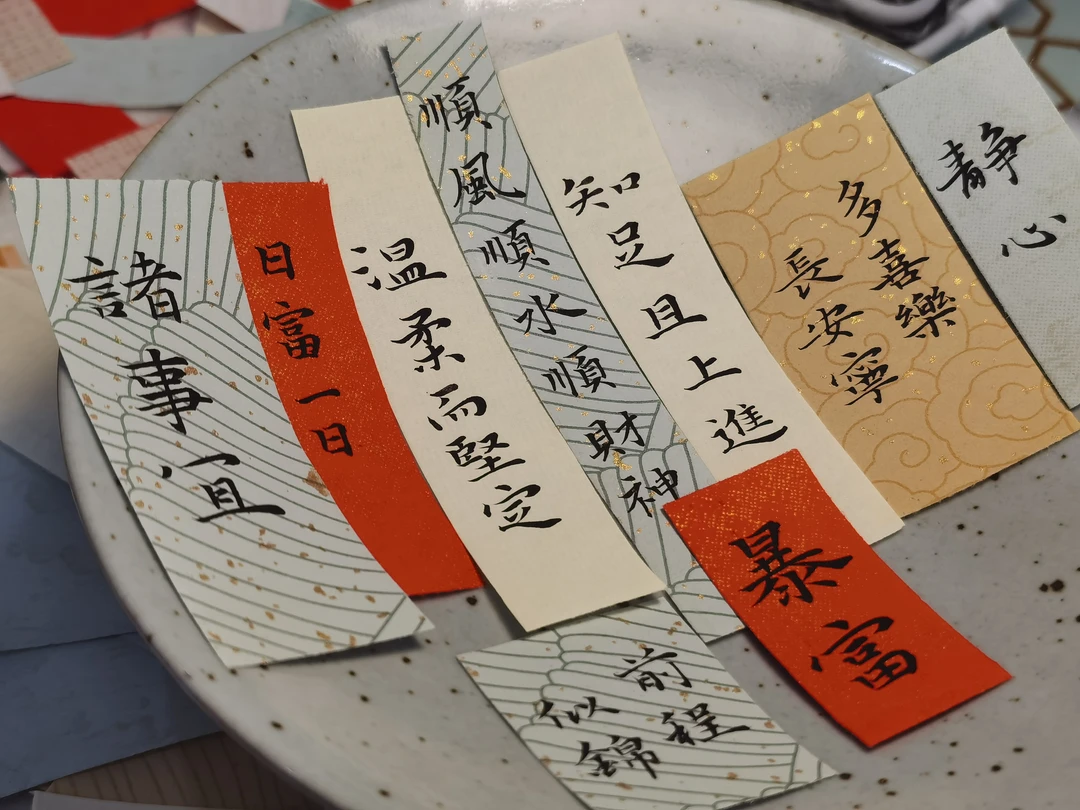 諸事宜
日富一日
温柔而堅定
順風順水順財神
知足且上進
多喜樂
長安寧
靜心
暴富
前程
似錦